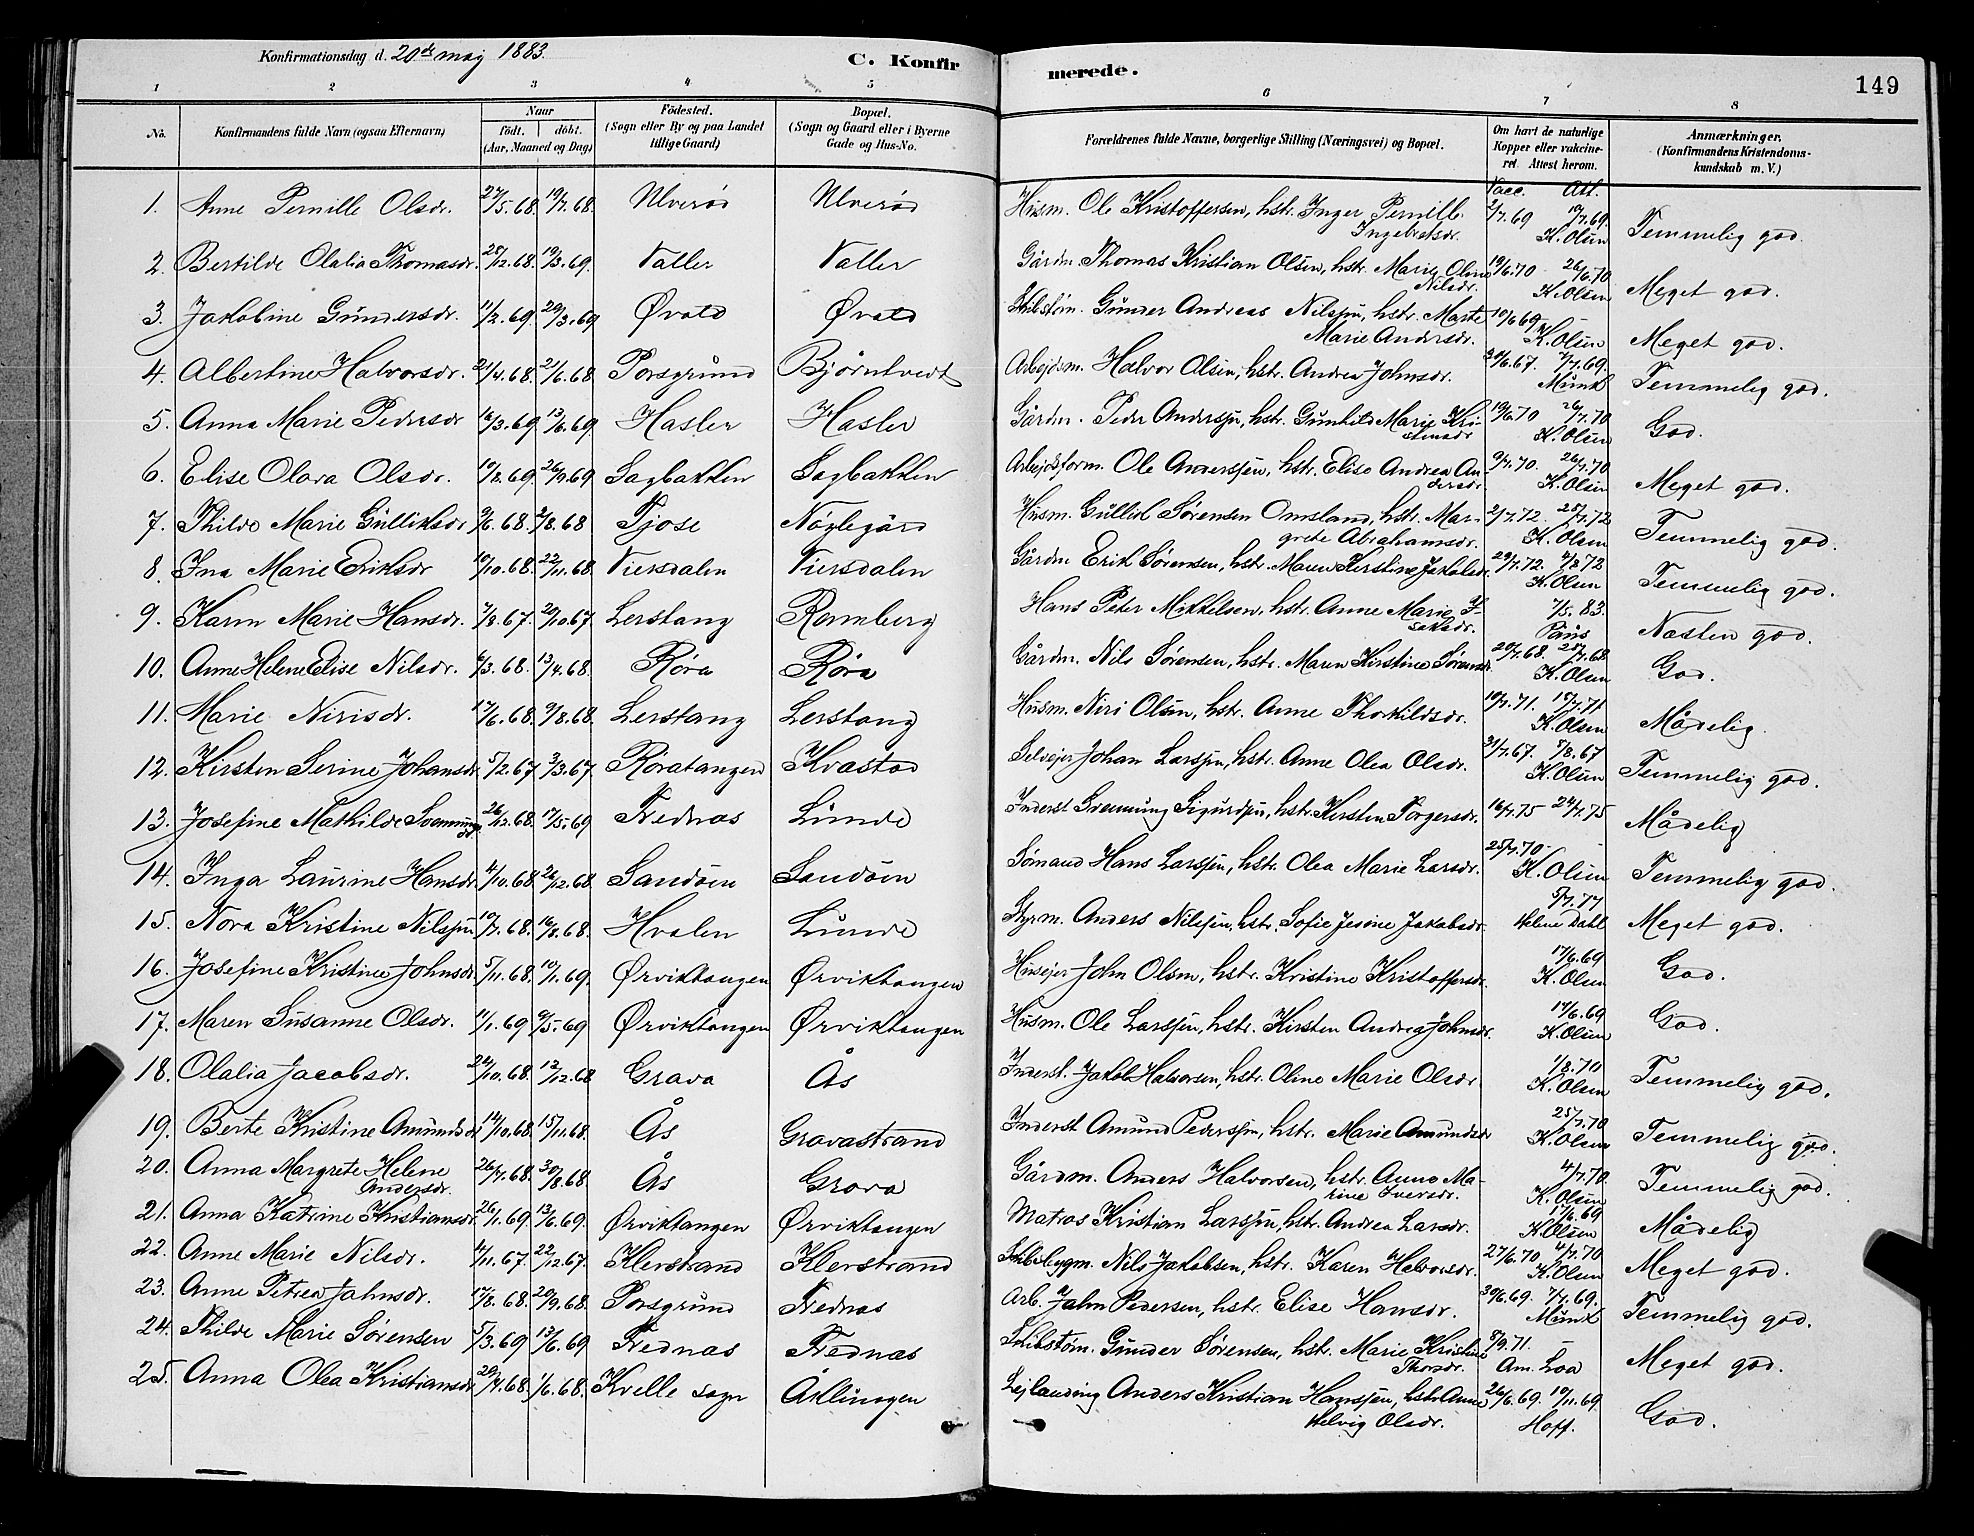 Konfirmationsdag d. 20de maj 1883.
C. Konfir
merede.
149
1 2 3 4 5 6 7 8
No. Konfirmandens fulde Navn (ogsaa Efternavn) Naar født. døbt. (Aar, Maaned og Dag) Fødested. (Sogn eller By og paa Landet tillige Gaard) Bopæl. (Sogn og Gaard eller i Byerne Gade og Hus-No. Forældrenes fulde Navne, borgerlige Stilling (Næringsvei) og Bopæl. Om havt de naturlige Kopper eller vakcineret. Attest herom. Anmærkninger. (Konfirmandens Kristendomskundskab m. V.)
Vacc. Att.
1. Anne Pernille Olsdr. 27/5.68. 19/7.68. Ulverød Ulverød Husm. Ole Kristoffersen, hstr. Inger Pernille Ingebretsdr. 2/7.69 10/7.69. K. Olsen Temmelig god.
2. Bertilde Olalia Thomasdr. 28/12.68. 19/3.69. Valler Valler Gårdm. Thomas Kristian Olsen, hstr. Marie Oline Nilsdr. 19/6.70 26/6.70 K. Olsen Meget god.
3. Jakobine Gundersdr. 11/2.69. 29/3.69 Øvald Øvald Skibstøm. Gunder Andreas Nilssen, hstr. Marte Marie Andersdr. 10/6 69 K. Olsen Meget god.
4. Albertine Halvorsdr. 21/4.68. 21/6.68 Porsgrund Bjørntvedt Arbejdsm. Halvor Olsen, hstr. Andrea Johnsdr. 30/6.67. 7/7.69. Munk Temmelig god.
5. Anna Marie Pedersdr 16/3.69 13/6.69. Hasler Hasler Gårdm. Peder Anderssen, hstr. Gunhild Marie Kristensdr 19/6.70 26/7.70 K. Olsen God.
6. Elise Olava Olsdr. 19/8.69. 26/9.69 Sagbakken Sagbakken Arbejdsform. Ole Anderssen, hstr. Elise Andrea Andersdr 9/7.70. 26/7.70 K. Olsen Meget god.
7. Thilde Marie Gulliksdr 9/6.68. 2/8.68 Tjose Nøglegård Husm. Gullik Sørensen Omsland, hstr. Margrete Abrahamsdr. 2/7.72. 25/7.72 K. Olsen Temmelig god.
8. Ina Marie Eriksdr 10/10.68. 22/11.68. Viersdalen Viersdalen Gårdm Erik Sørensen, hstr. Maren Kirstine Jakobsdr. 29/7.72. 4/8 72 K. Olsen Temmelig god.
9. Karen Marie Hansdr. 7/8.67. 20/10.67. Lerstang Ramberg Hans Peter Mikkelsen, hstr. Anne Marie Isaksdr. 7/5. 83. Paus Næsten god.
10. Anne Helene Elise Nilsdr. 4/3.68. 13/4.68. Røra Røra Gårdm. Nils Sørensen, hstr. Maren Kirstine Sørensdr. 20/7.68. 28/7.68 K. Olsen God.
11. Marie Nirisdr. 17/6.68. 9/8.68. Lerstang Lerstang Husm. Niri Olsen, hstr. Anne Thorkildsdr. 10/7.71. 18/7.71 K. Olsen Mådelig.
12. Kirsten Serine Johansdr. 5/2.67 3/3.67. Røratangen Kvastad Selvejer Johan Larssen, hstr. Anne Olea Olsdr. 31/7.67. 5/8.67 K. Olsen Temmelig god.
13. Josefine Mathilde Svenningsd. 26/12.68. 17/5.69 Frednæs Lunde Inderst Svenning Sigurdsen, hstr. Kirsten Torgersdr. 16/7.75 24/7.75 Mådelig
14. Inga Laurine Hansdr 4/10.68. 26/12.68. Sandøen Sandøen Sømand Hans Larssen, hstr. Olea Marie Larsdr. 25/7.70 K. Olsen Temmelig god.
15. Nora Kristine Nilssen. 10/7.68. 16/8.68. Hvalen Lunde Styrm. Anders Nilssen, hstr. Sofie Jesine Jakobsdr. 5/7.77 Helene Dahl Meget god.
16. Josefine Kristine Johnsdr. 5/11.68. 10/1.69. Ørviktangen Ørviktangen Husejer John Olsen, hstr. Kristine Kristoffersdr. 17/6.69 K. Olsen God.
17. Maren Susanne Olsdr. 11/1.69 9/5.69 Ørviktangen Ørviktangen Husm. Ole Larssen, hstr. Kirsten Andrea Johnsdr. 17/6.69 K. Olsen God.
18. Olalia Jacobsdr. 24/10.68. 12/12.68 Grava Ås Inderst. Jakob Halvorsen, hstr. Oline Marie Olsdr 1/8.70 K. Olsen Temmelig god.
19. Berte Kristine Amundsdr 14/10.68. 15/11.68. Ås Gravastrand Inderst Amund Pederssen, hstr. Marie Amundsdr 25/7.70 K. Olsen Temmelig god.
20. Anna Margrete Helene Andersdr. 26/7.68. 30/8.68 Ås Grava Gårdm. Anders Halvorsen, hstr. Anne Marine Iversdr. 4/7.70 K. Olsen Temmelig god.
21. Anna Katrine Kristiansdr. 26/1.69. 13/6.69. Ørviktangen Ørviktangen Matros Kristian Larssen, hstr. Andrea Larsdr. 17/6.69 K. Olsen Mådelig
22. Anne Marie Nilsdr. 4/11.67. 22/12.67. Klevstrand Klevstrand Skibsbygm. Nils Jakobsen, hstr. Karen Halvorsdr. 27/6.70 4/7.70 K. Olsen Meget god.
23. Anne Petrea Jahnsdr. 17/8.68. 20/9.68. Porsgrund Frednæs Arb. Jahn Pedersen, hstr. Elise Hansdr. 30/6.69 7/7.69. Munk Temmelig god.
24. Thilde Marie Sørensen 5/3.69 13/6.69 Frednæs Frednæs Skibstøm. Gunder Sørensen, hstr. Marie Kristine Thorsdr. 8/9.71. Am. Loa Meget god.
25. Anna Olea Kristiansdr 20/4.68. 1/6.68. Kvelle sogn Åklungen Lejlending Anders Kristian Hanssen, hstr. Anne Helvig Olsdr. 26/6.69. 10/11.69 Hoff. God.